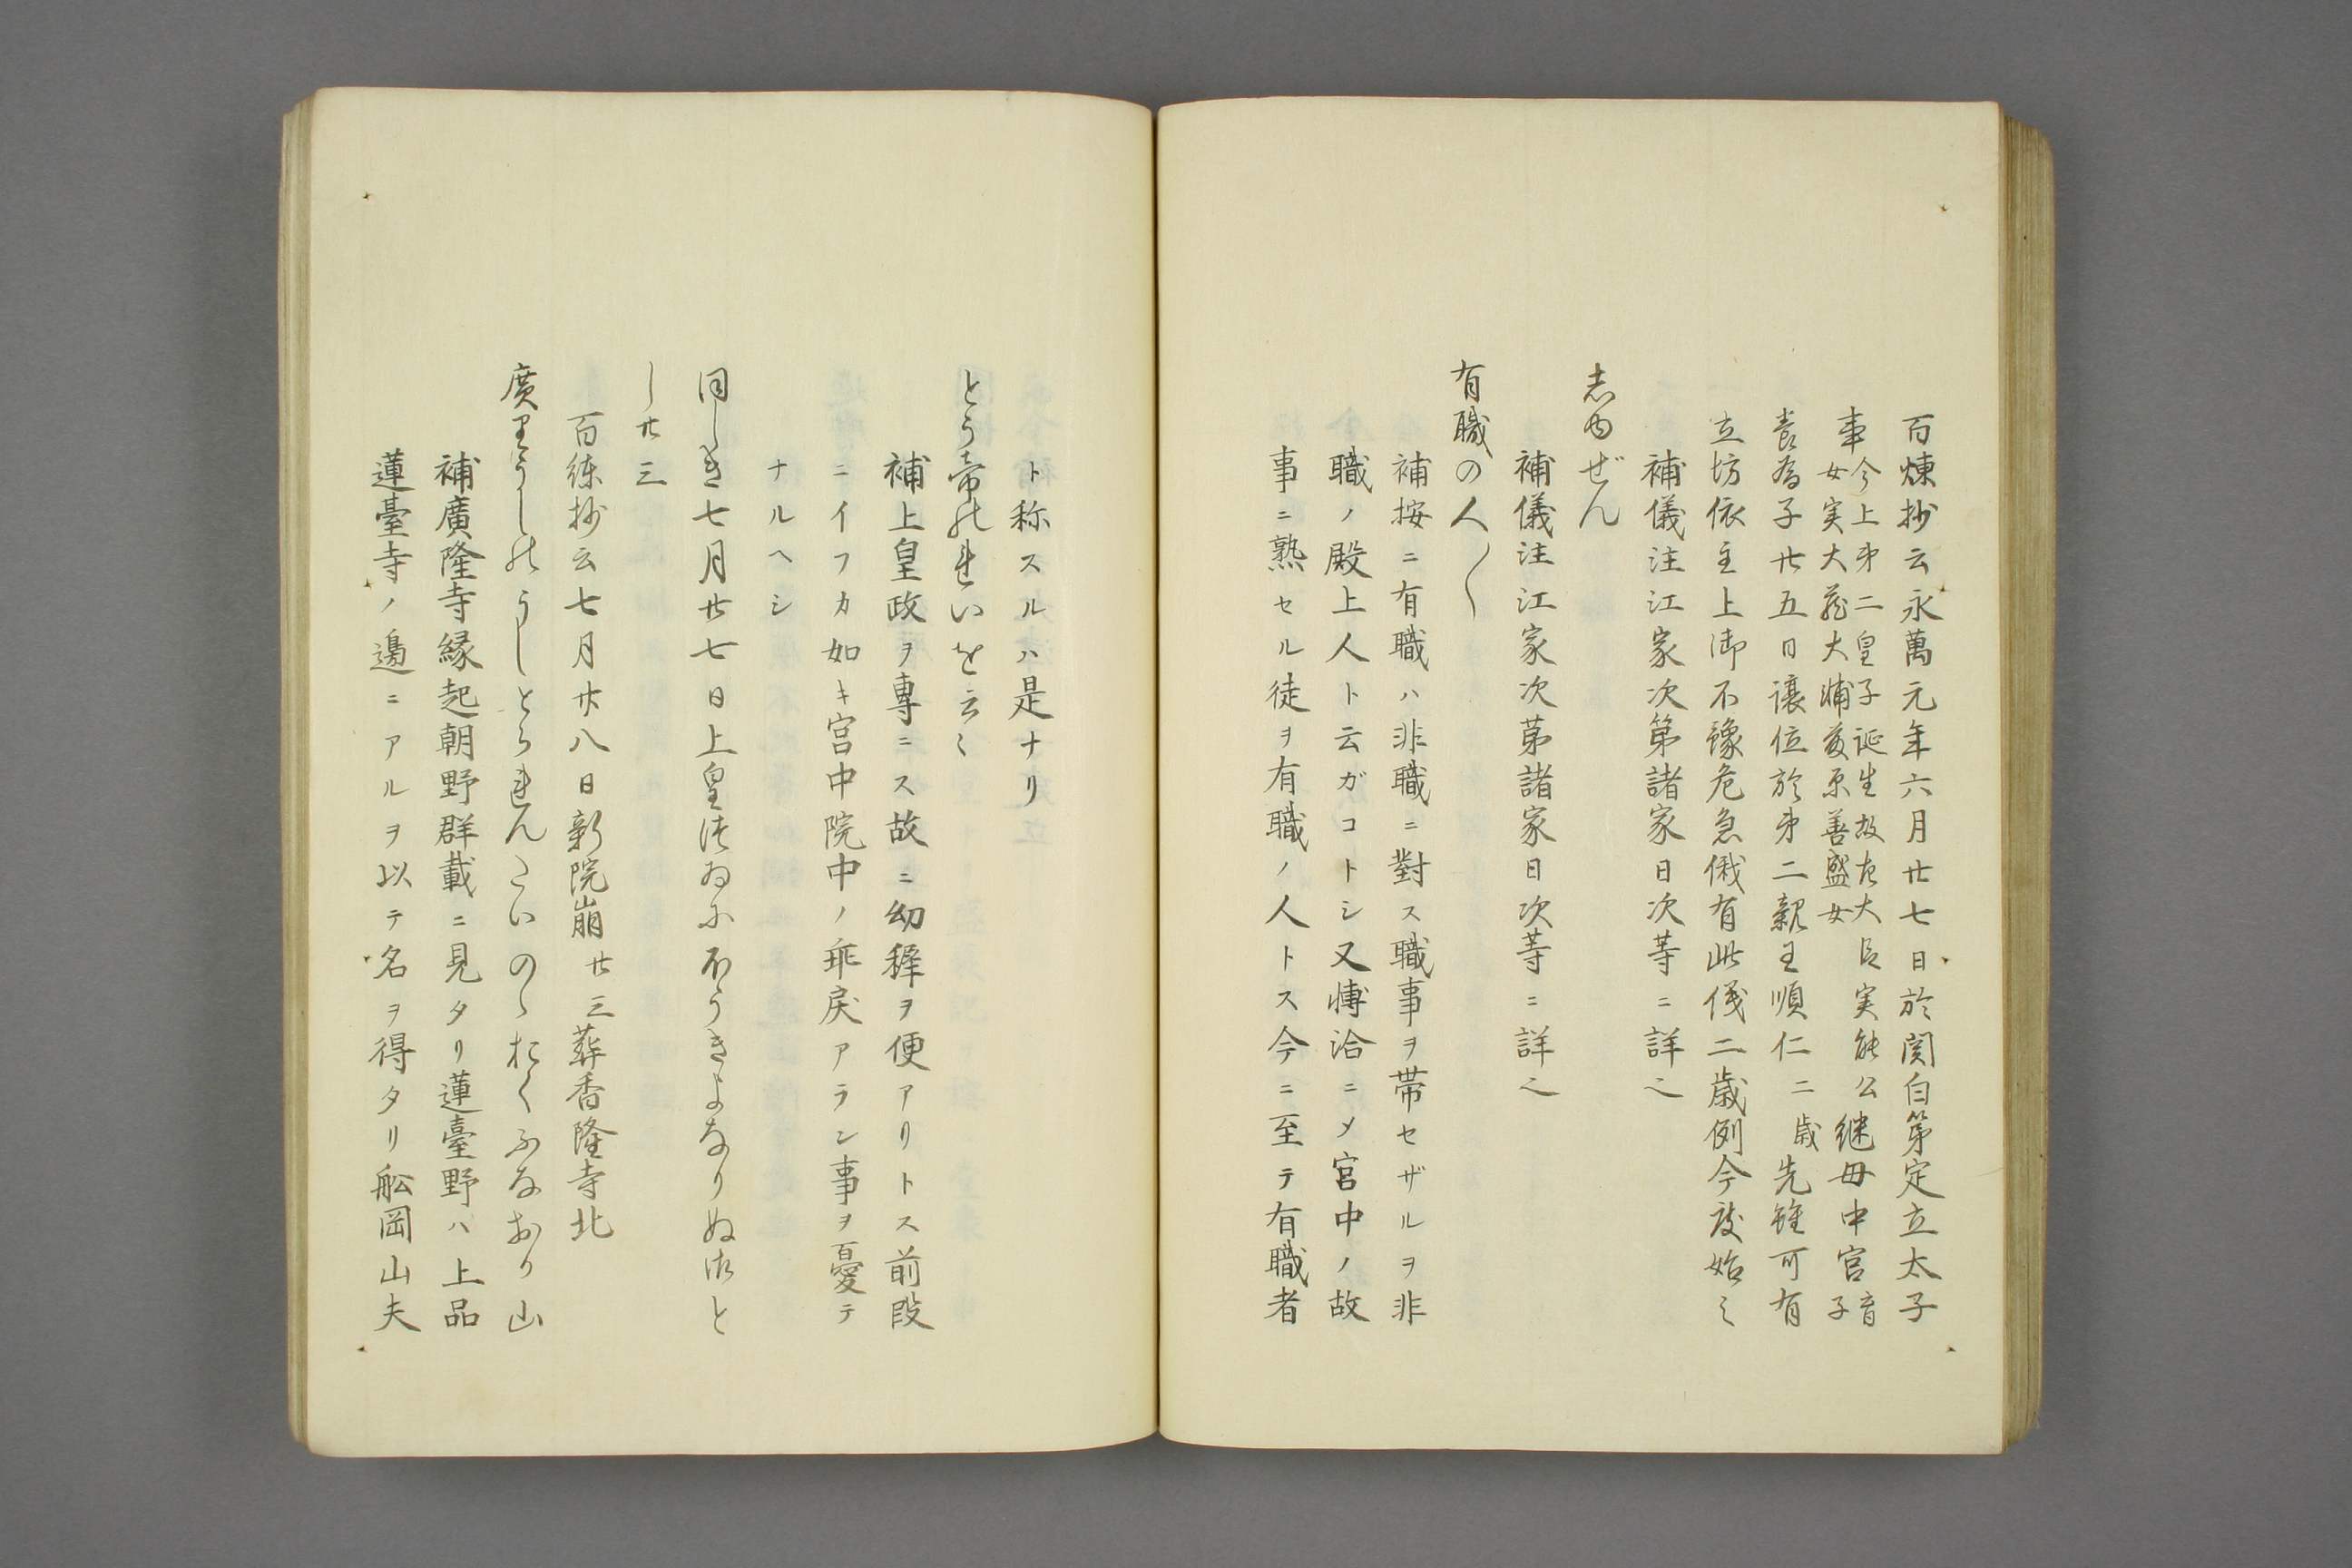 百煉抄云永萬元年六月廿七日於関白第定立太子
事今上第二皇子誕生故左大臣実能公継母中宮育子
女実大蔵大輔藤原善盛女
養為子廿五日譲位於第二親王順仁二歳先雖可有
立坊依主上御不豫危急俄有此儀二歳例今度始之
補儀注江家次第諸家日次等ニ詳也
志ゆぜん
補儀注江家次第諸家日次等ニ詳也
有職の人〱
補按ニ有職ハ非職ニ對ス職事ヲ帯セザルヲ非
職ノ殿上人ト云ガコトシ又博洽ニメ宮中ノ故
事ニ熟セル徒ヲ有職ノ人トス今ニ至テ有職者
ト称スルハ是ナリ
とう帝のれいを云〻
補上皇政ヲ專ニス故ニ幼稺ヲ便アリトス前段
ニイフカ如キ宮中院中ノ乖戻アラン事ヲ憂テ
ナルヘシ
同しき七月廿七日上皇つゐにほうきよなりぬ御と
し廿三
百練抄云七月廿八日新院崩廿三葬香隆寺北
廣りうしのうしとられんたいのゝおくふなおり山
補廣隆寺縁起朝野群載ニ見タリ蓮臺野ハ上品
蓮臺寺ノ邊ニアルヲ以テ名ヲ得タリ舩岡山夫